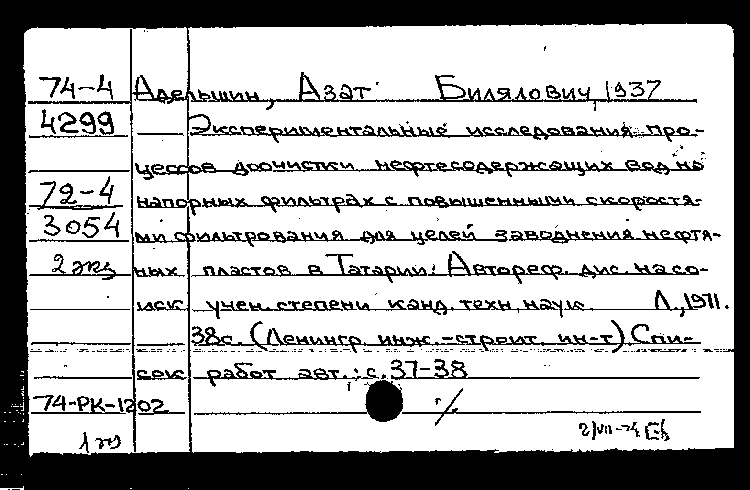 74-4 Адельшин, Азат Билялович, 1937
4299 Экспериментальные исследования про-
цессов доочистки нефтесодержащих вод на
72-4 напорных фильтрах с повышенными скоростя-
3054 ми фильтрования для целей заводнения нефтя-
2 экз ных пластов в Татарии: Автореф. дис. на со-
иск. учен. степени канд. техн. наук. Л., 1971.
38с. (Ленингр. инж.-строит. ин-т) Спи-
сок работ авт.: с. 37-38
74-РК-1202